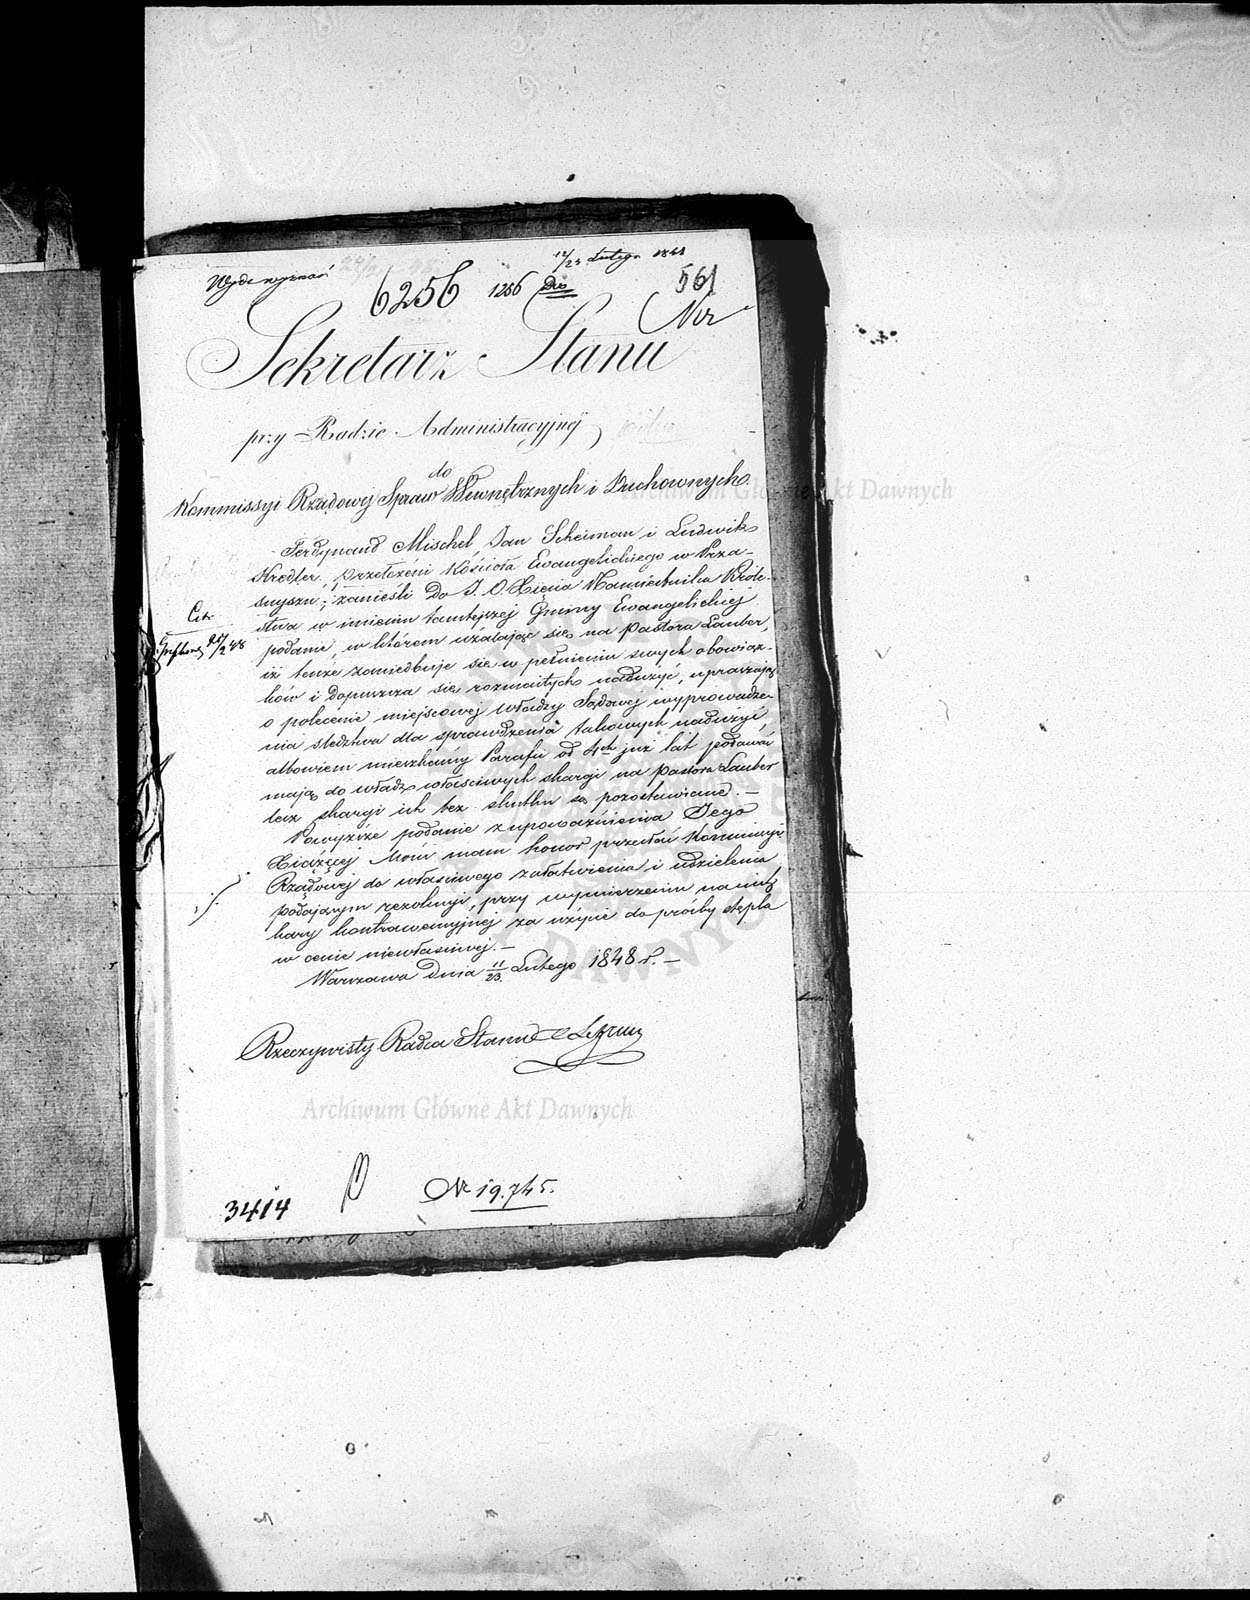 Wydz. wyznań
12/24 Lutego 1848
6256 1256 561
Sekretarz Stanu
przy Radzie Administracyjnéj
do
Kommissyi Rządowéj Spraw Wewnętrznych i Duchownych
Ferdynand Mischel Jan Scheiman i Ludwik
Kredler, przełożeni Kościoła Ewangelickiego w Prza-
snyszu, zanieśli do J. O. Xięcia Namiestnika Króle-
stwa w imieniu tamtejszej Gminy Ewangelickiej
podanie, w którem użalając się na Pastora Lauber,
iż tenże zaniedbuje się w pełnieniu swych obowiąz-
ków i dopuszcza się rozmaitych nadużyć, upraszają
o polecenie miejscowej władzy Sądowej wyprowadze-
nia śledztwa dla sprawdzenia takowych nadużyć,
albowiem mieszkańcy Parafii od 4ch już lat podawać
mają do władz właściwych skargi na Pastora Lauber
lecz skargi ich bez skutku są pozostawiane. —
Powyższe podanie z upoważnienia Jego
Xiążęcéj Mości mam honor przesłać Kommissyi
Rządowej do właściwego załatwienia i udzielenia
podającym rezolucyi, przy wymierzeniu na nich
kary kontrawencyjnej za użycie do prośby stępla
w cenie niewłaściwej. —
Warszawa dnia 11/23 Lutego 1848 r. —
Rzeczywisty Radca Stanu
3414
Nr 19.745.
Archiwum Główne Akt Dawnych
Archiwum Główne Akt Dawnych